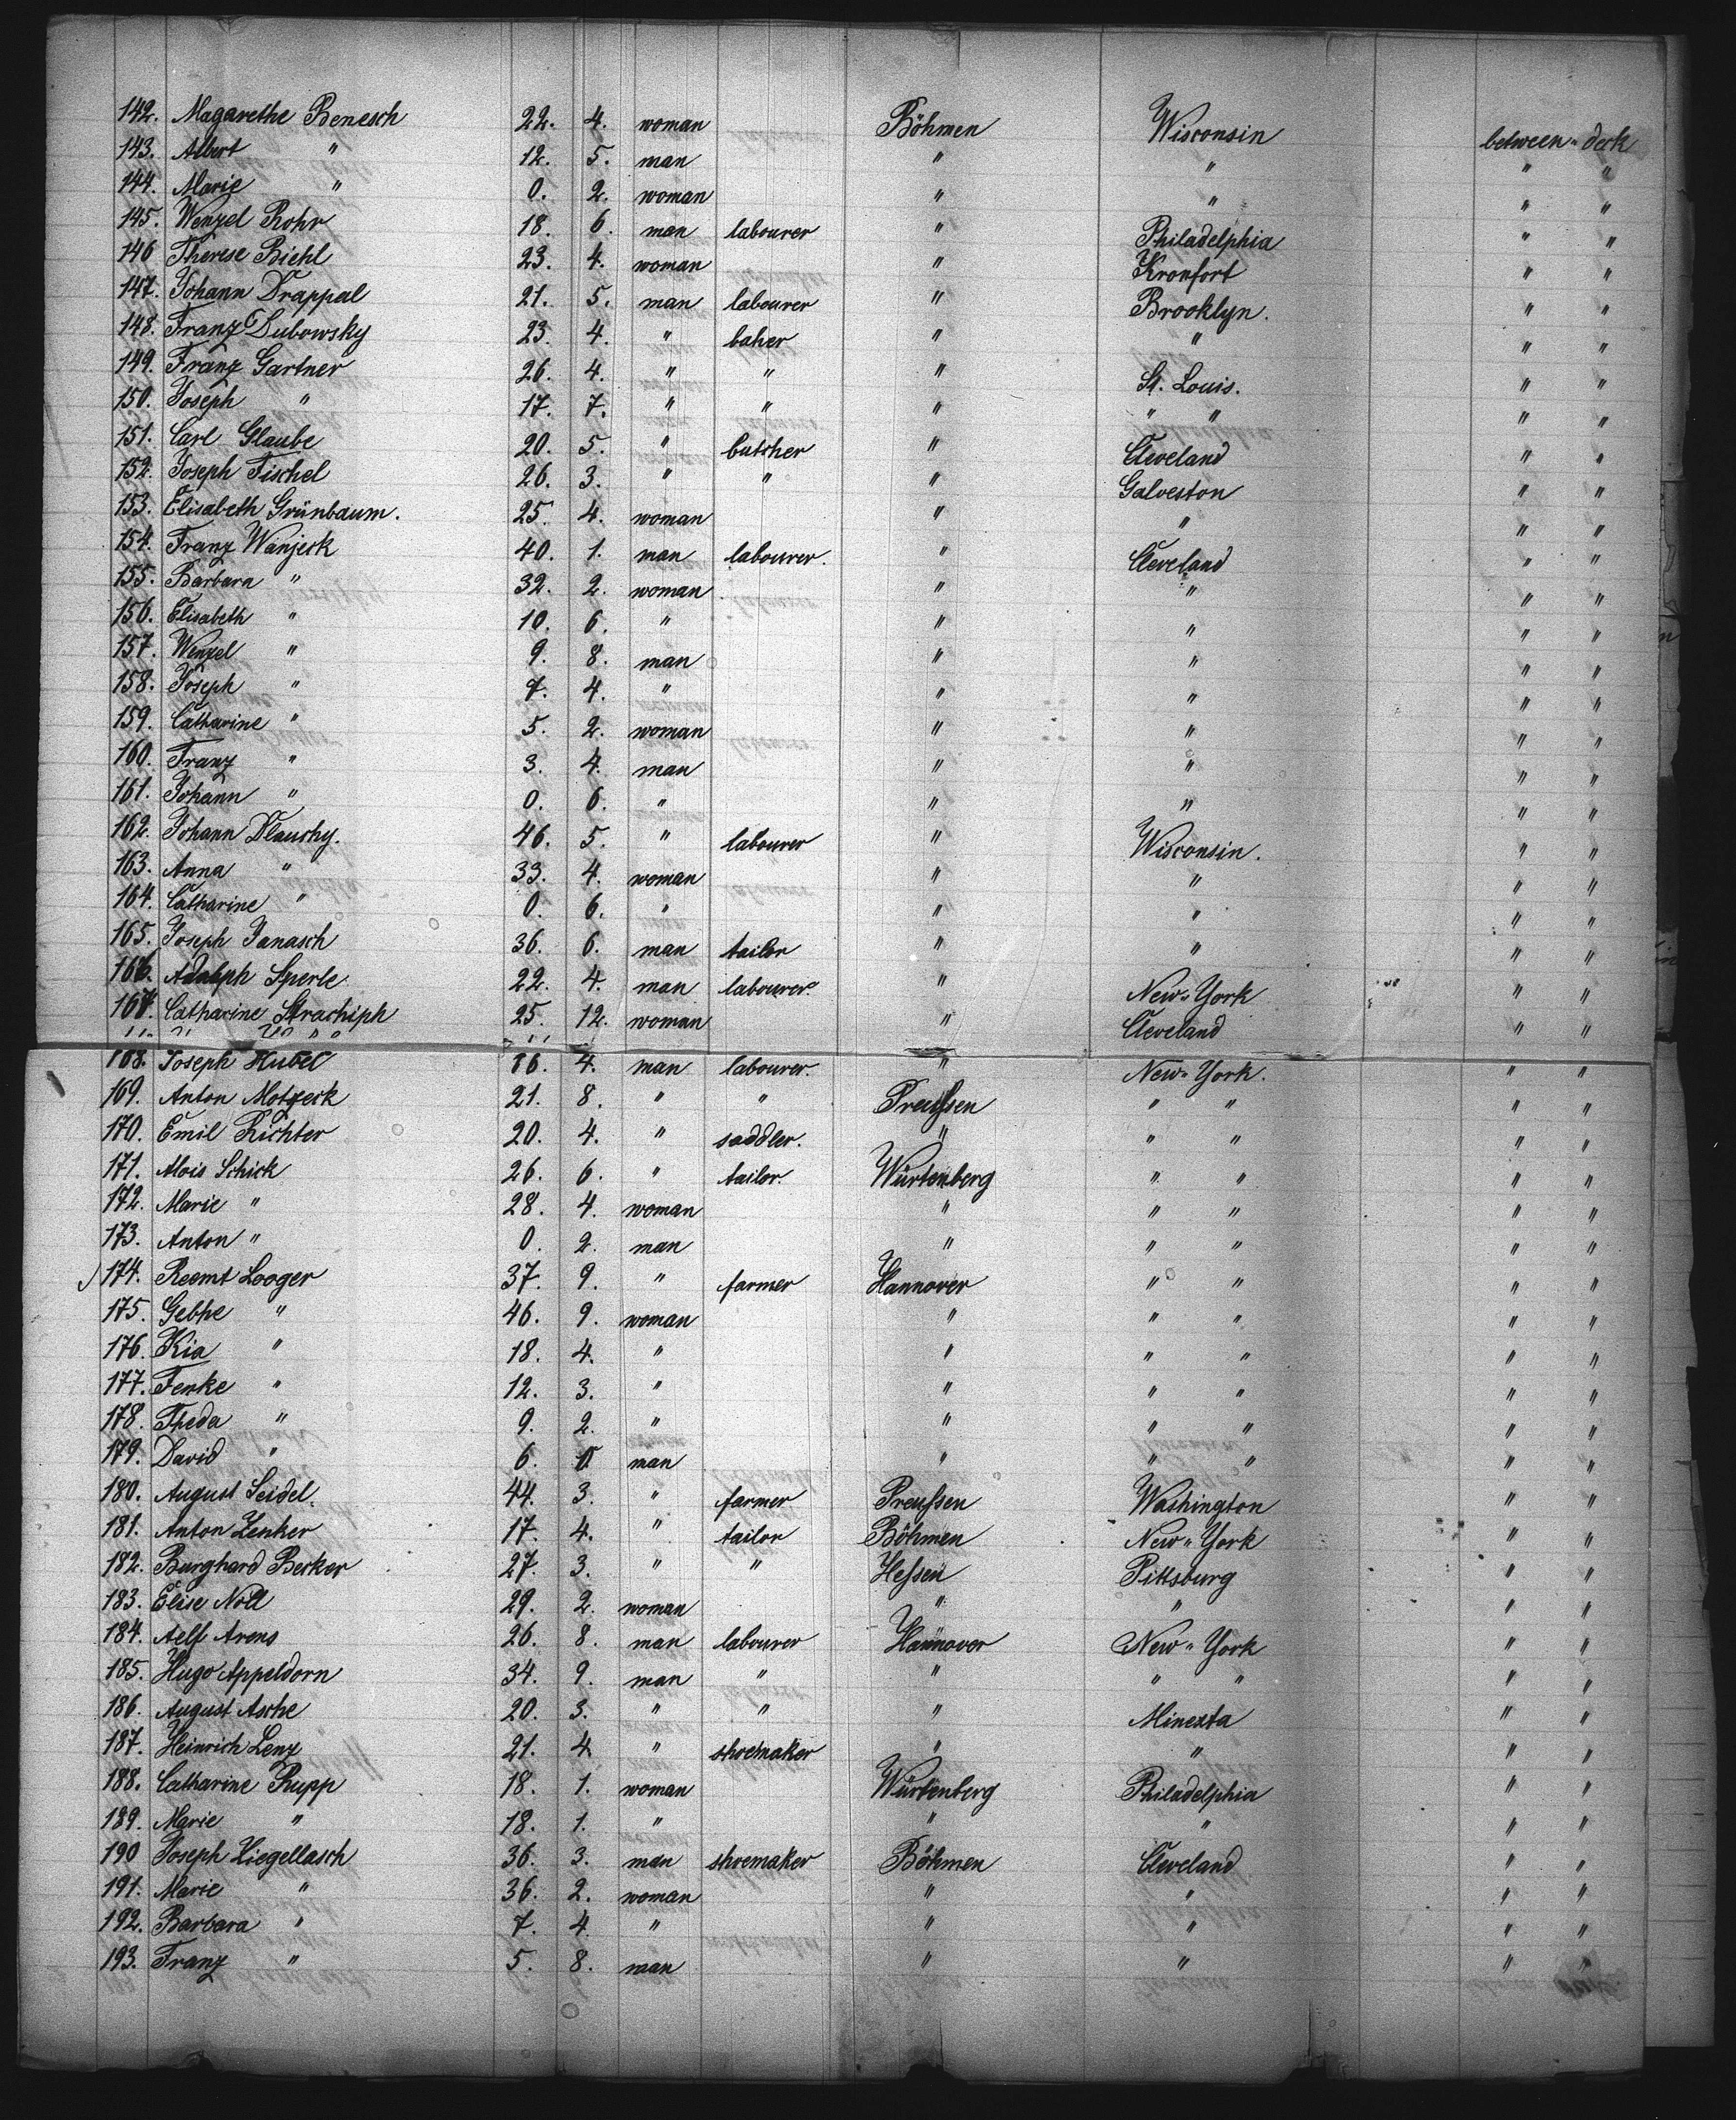 142. Magarethe Benesch 22. 4. woman Böhmen Wisconsin between " deck
143. Albert " 12. 5. man " " " "
144. Marie " 0. 2. woman " " " "
145. Wenzel Rohr 18. 6. man labourer " Philadelphia " "
146 Therese Biehl 23. 4. woman " Kronfort " "
147. Johann Drappal 21. 5. man labourer " Brooklyn. " "
148. Franz Dubowsky 23. 4. " baher " " " "
149. Franz Gartner 26. 4. " " " St. Louis. " "
150. Joseph " 17. 7. " " " " " " "
151. Carl Glaube 20. 5. " butcher " Cleveland " "
152. Joseph Fischel 26. 3. " " " Galveston " "
153. Elisabeth Grünbaum. 25. 4. woman " " " "
154. Franz Wanjeck 40. 1. man labourer. " Cleveland " "
155. Barbara " 32. 2. woman " " " "
156. Elisabeth " 10. 6. " " " " "
157. Wenzel " 9. 8. man " " " "
158. Joseph " 7. 4. " " " " "
159. Catharine " 5. 2. woman " " " "
160. Franz " 3. 4. man " " " "
161. Johann " 0. 6. " " " " "
162. Johann Dlauchy. 46. 5. " labourer " Wisconsin. " "
163. Anna " 33. 4. woman " " " "
164. Catharine " 0. 6. " " " " "
165. Joseph Janasch 36. 6. man tailor " " " "
166. Adolph Sperle 22. 4. man labourer. " New " York " "
167. Catharine Strachiph 25. 12. woman " Cleveland " "
168. Joseph Hubel 16. 4. man labourer. " New " York. " "
169. Anton Motzeck 21. 8. " " Preußen " " " "
170. Emil Richter 20. 4. " saddler. " " " " "
171. Alois Schick 26. 6. " tailor. Würtenberg " " " "
172. Marie " 28. 4. woman " " " " "
173. Anton " 0. 2. man " " " " "
174. Reemt Looger 37. 9. " farmer Hannover " " " "
175. Gebhe " 46. 9. woman " " " " "
176. Kia " 18. 4. " " " " " "
177. Fenke " 12. 3. " " " " " "
178. Theda " 9. 2. " " " " " "
179. David " 6. 0 man " " " " "
180. August Seidel. 44. 3. " farmer Preußen Washington " "
181. Anton Zenker 17. 4. " tailor Böhmen New " York " "
182. Burghard Becker 27. 3. " " Heßen Pittsburg " "
183. Elise Nöll 29. 2. woman " " " "
184. Aelf Arens 26. 8. man labourer Hannover New " York " "
185. Hugo Appeldorn 34. 9. man " " " " " "
186. August Asche 20. 3. " " " Minexta " "
187. Heinrich Lenz 21. 4 " shoemaker " " " "
188. Catharine Rupp 18. 1. woman Würtenberg Philadelphia " "
189. Marie " 18. 1. " " " " "
190 Joseph Ziegellasch 36. 3. man shoemaker Böhmen Cleveland " "
191. Marie " 36. 2. woman " " " "
192. Barbara " 7. 4. " " " " "
193. Franz " 5. 8. man " " " "